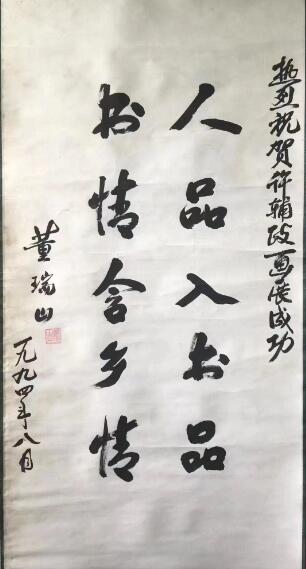 热烈祝贺许辅政画展成功
人品入书品
书情含乡情
董瑞山
一九九四年八月